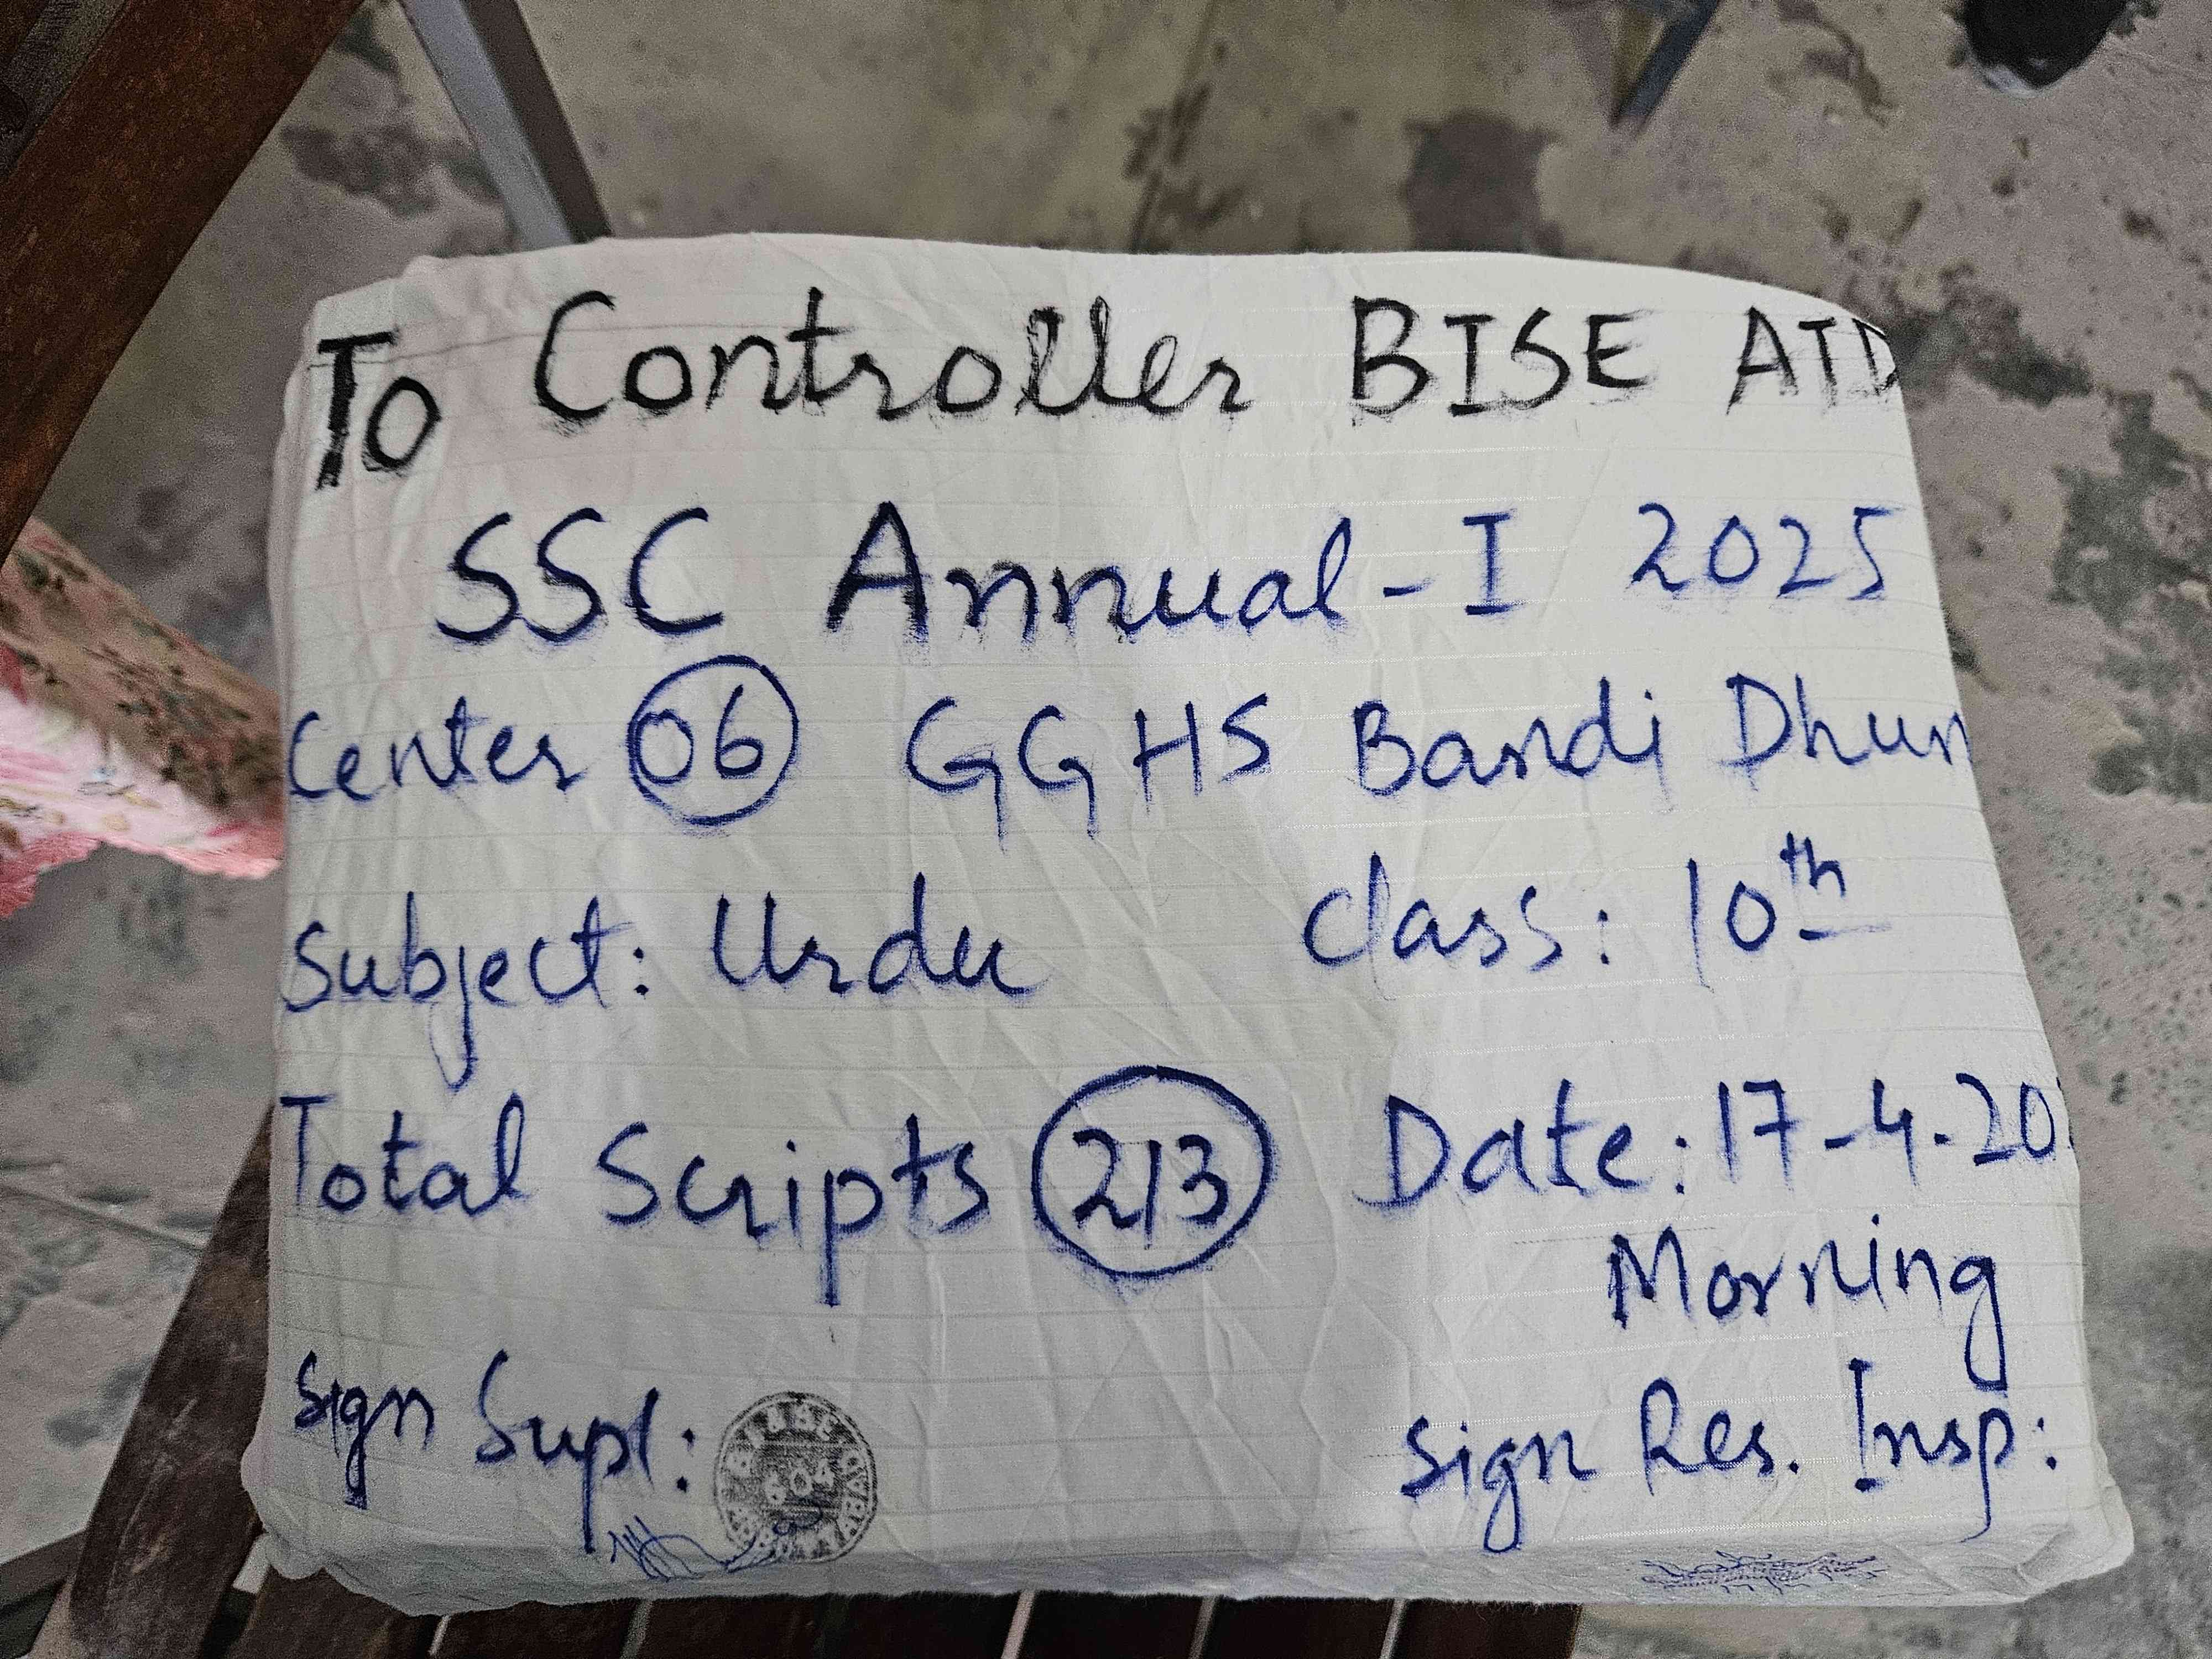 To Controller BISE ATD
SSC Annual-I 2025
Center 06 GGHS Bandi Dhun
Subject: Urdu Class: 10th
Total Scripts 213 Date: 17-4-20
Morning
Sign Supl: Sign Res. Insp: